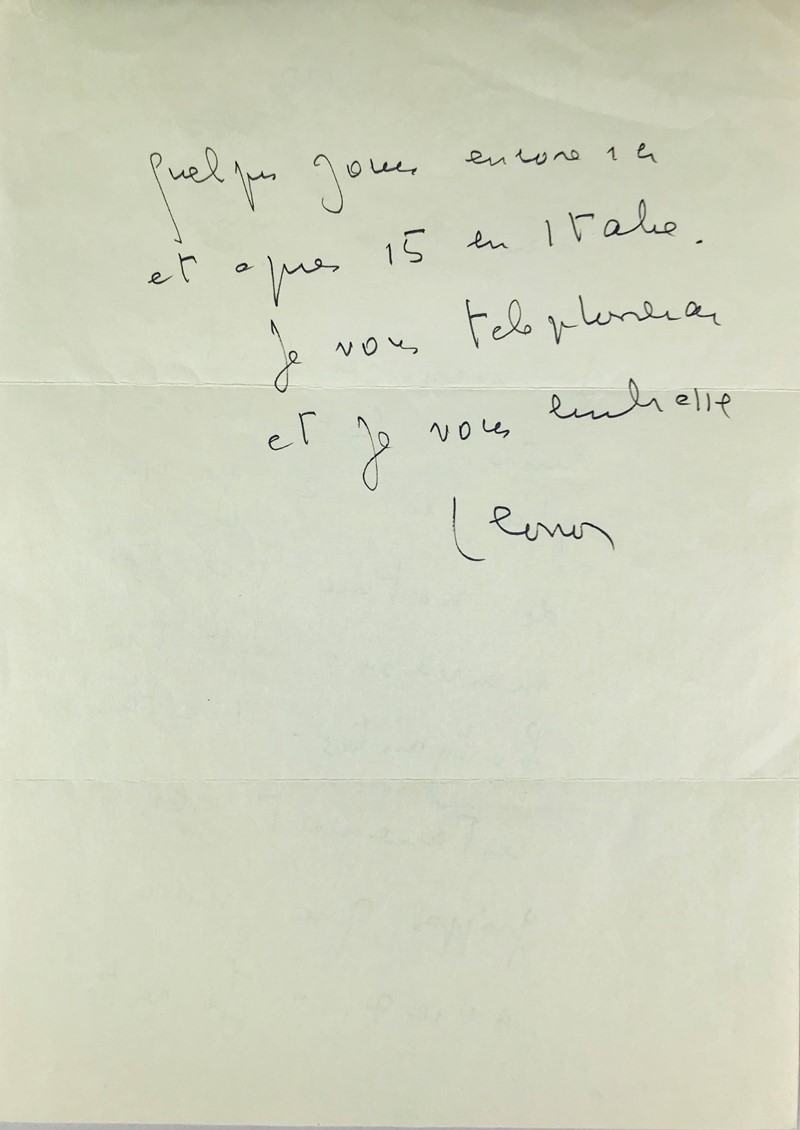 Quelques jours encore ici
et apres 15 en Italie.
Je vous telephonerai
et je vous embrasse
Leonor